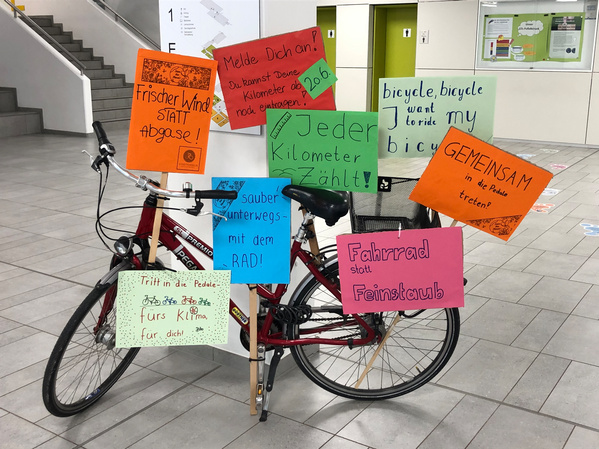 Frischer Wind
STATT
Abgase!
Melde Dich an!
Du kannst Deine
Kilometer ab
noch eintragen!
20.6.
Jeder
Kilometer
Zählt!
bicycle, bicycle
I want
to ride my
bicy
GEMEINSAM
in die Pedale
treten!
sauber
unterwegs-
mit dem
RAD!
Fahrrad
statt
Feinstaub
Tritt in die Pedale
fürs Klima,
für dich!
PREMIO